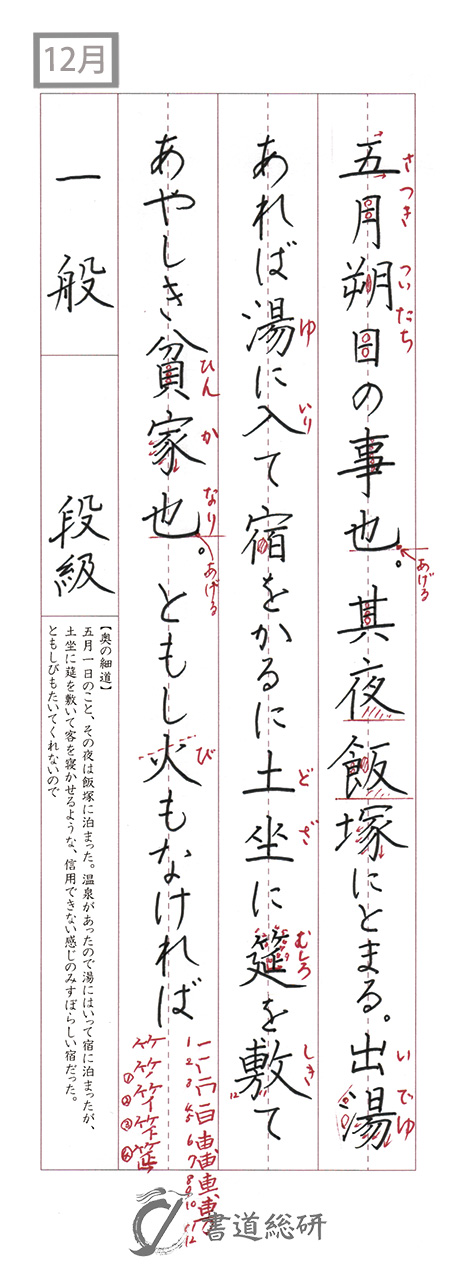 12月
五月朔日の事也。其夜飯塚にとまる。出湯
さつき ついたち あげる いでゆ
あれば湯に入て宿をかるに土坐に筵を敷て
ゆ いり どざ むしろ しき
12
あやしき貧家也。ともし火もなければ
ひんか なり あげる び
1 2 3 4 5 6 7 8 9 10 11 12
① ② ③ ④
一般
段級
【奥の細道】
五月一日のこと、その夜は飯塚に泊まった。温泉があったので湯にはいって宿に泊まったが、
土坐に筵を敷いて客を寝かせるような、信用できない感じのみすぼらしい宿だった。
ともしびもたいてくれないので
書道総研